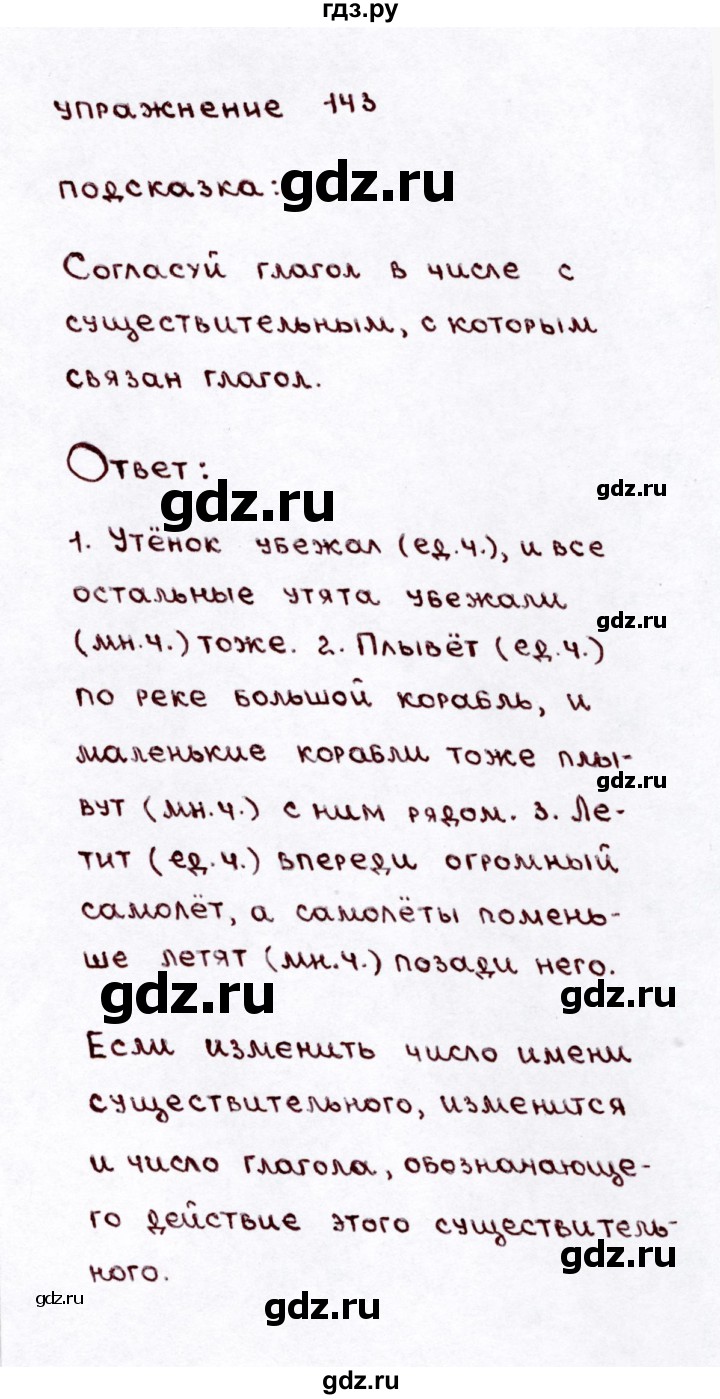 гдз.ру
упражнение 143
подсказка: gdz.ru
Согласуй глагол в числе с
существительным, с которым
связан глагол.
Ответ:
gdz.ru
gdz.ru
1. Утёнок убежал (ед.ч.), и все
остальные утята убежали
gdz.ru
(мн.ч.) тоже. 2. Плывёт (ед.ч.)
по реке большой корабль, и
маленькие корабли тоже плы-
gdz.ru
вут (мн.ч.) с ним рядом. 3. Ле-
тит (ед.ч.) впереди огромный
самолёт, а самолёты помень-
ше летят (мн.ч.) позади него.
gdz.ru
gdz.ru
Если изменить число имени
существительного, изменится
и число глагола, обозначающе-
го действие этого существитель-
gdz.ru
ного.
gdz.ru
gdz.ru
gdz.ru